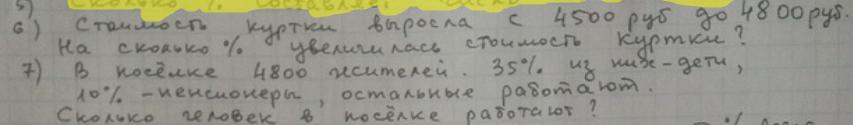 5) Сколько % составляет число
6) Стоимость куртки выросла с 4500 руб до 4800 руб.
На сколько % увеличилась стоимость куртки?
7) В посёлке 4800 жителей. 35% из них - дети,
10% - пенсионеры, остальные работают.
Сколько человек в посёлке работают?